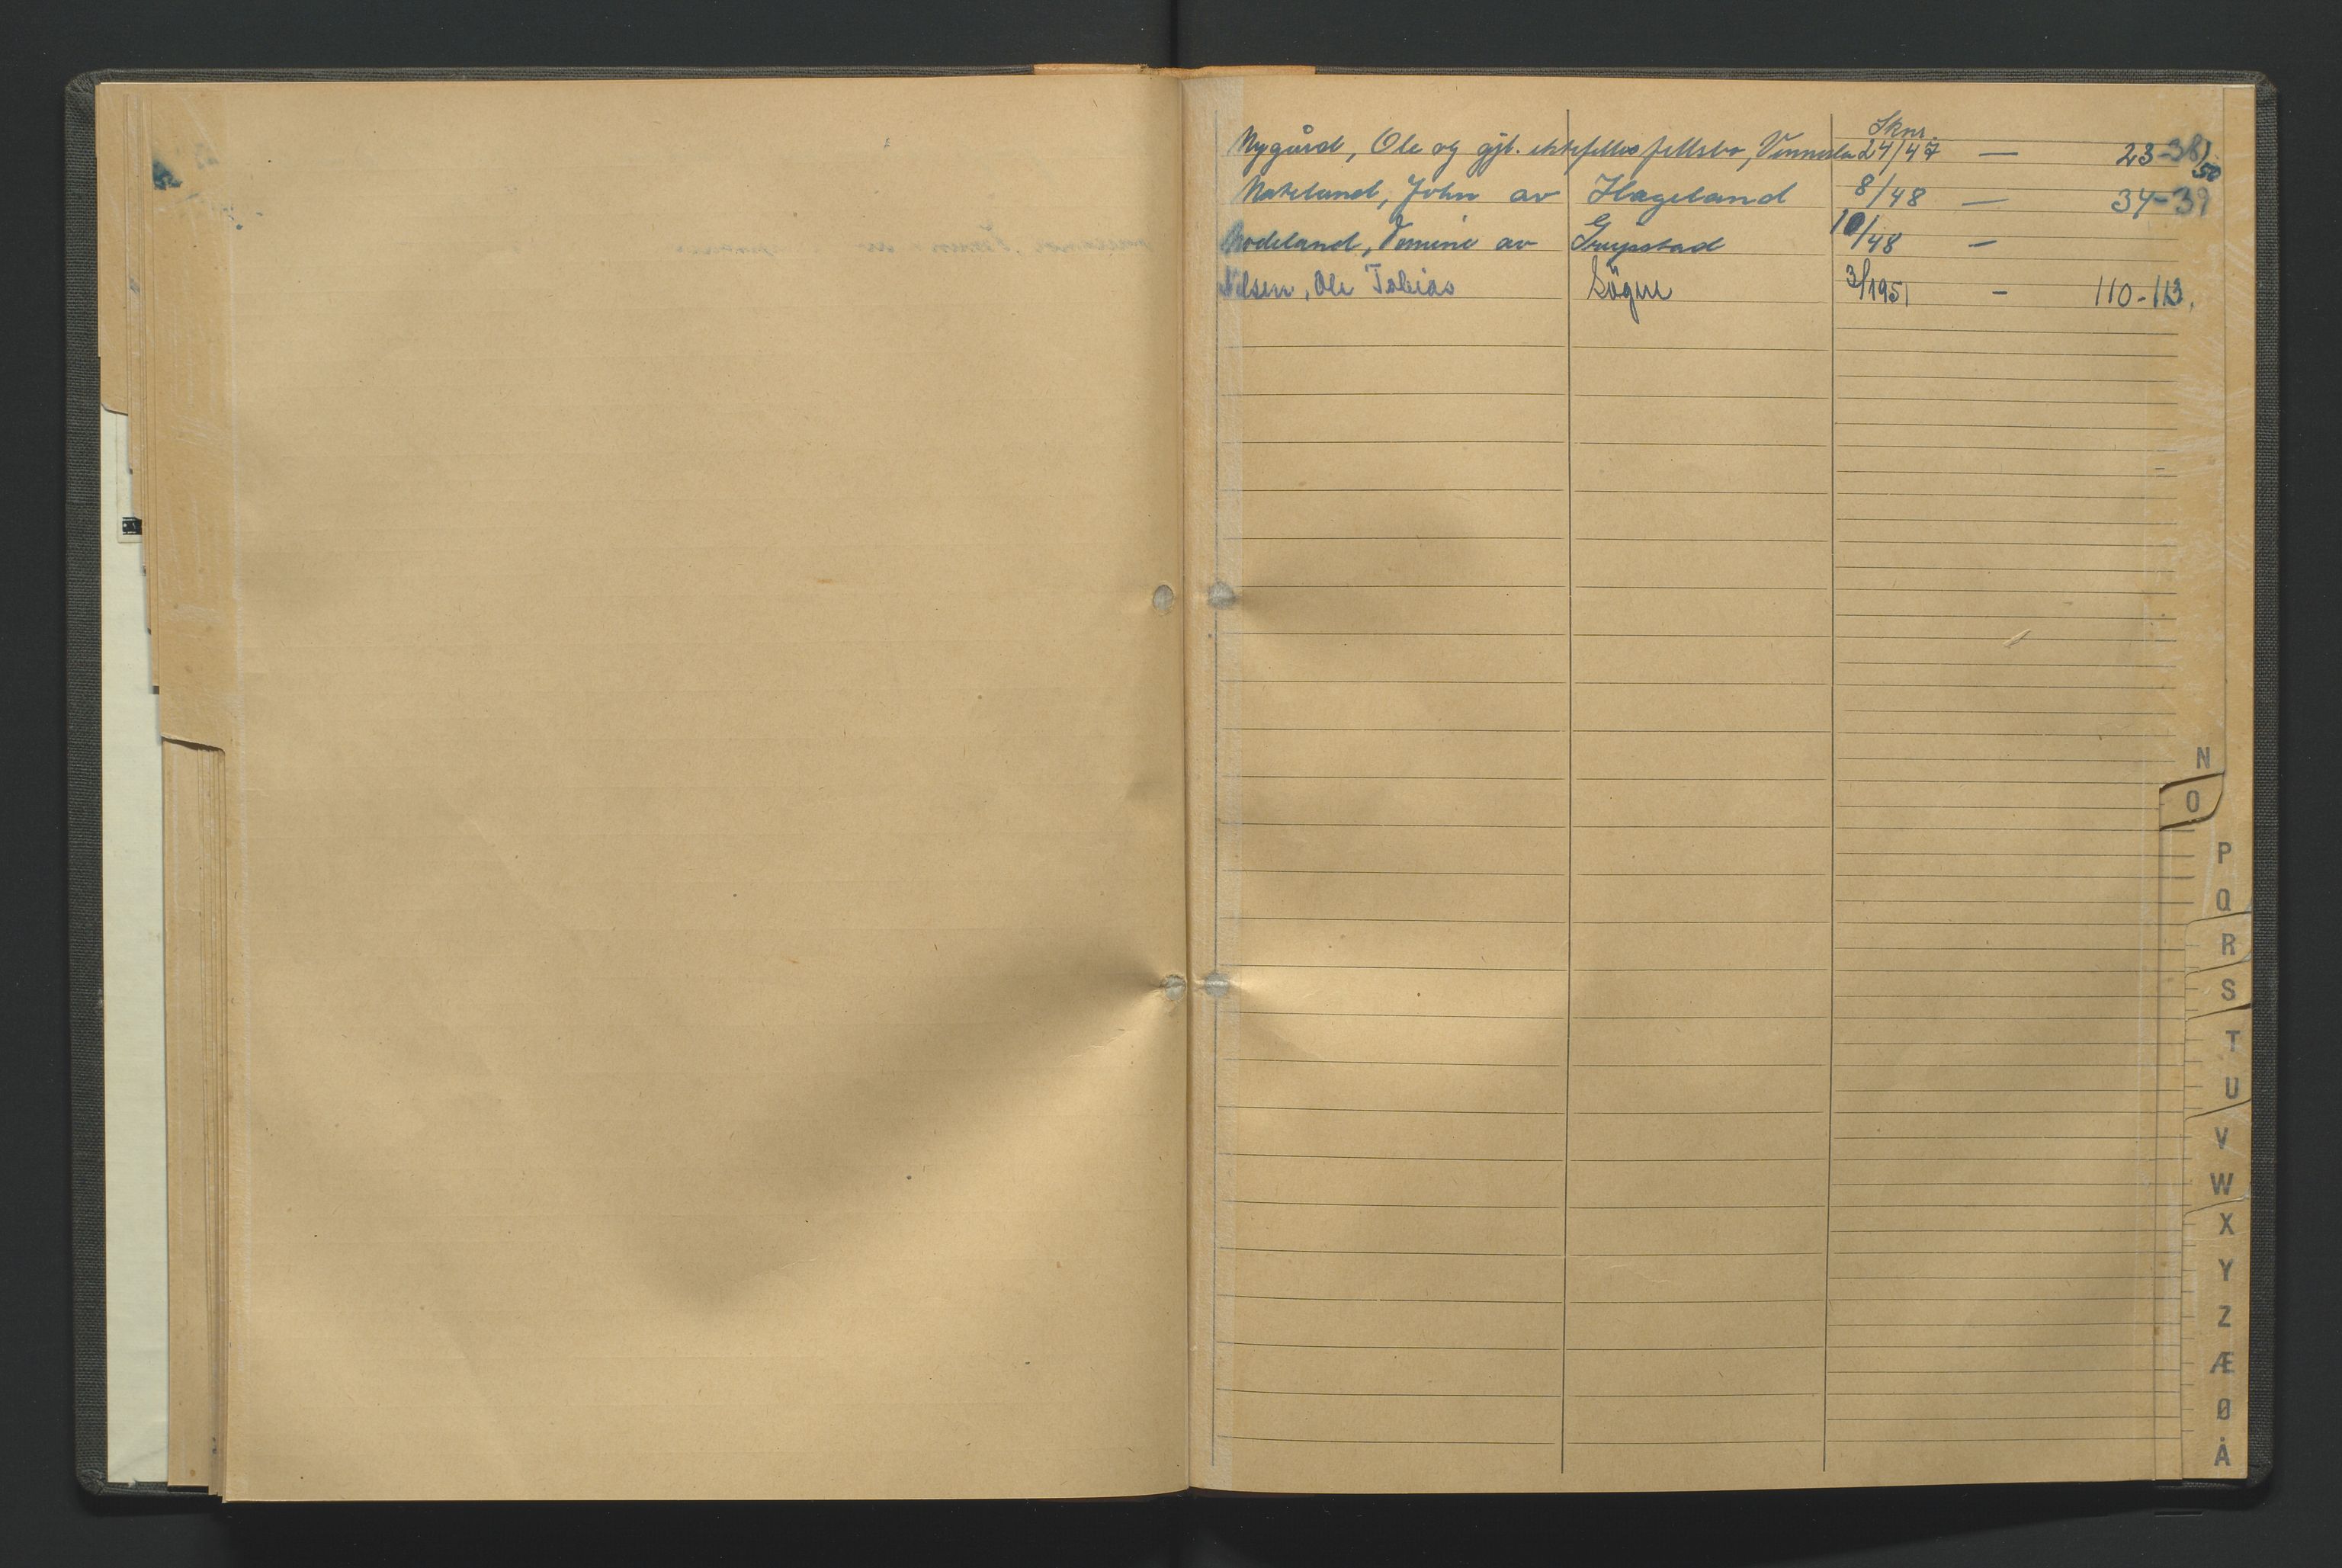 Sknr.
Nygård, Ole og gjt. ektefelles fellsbo, Vennesla 24/47 — 23-38, 50
Nateland, John av Hageland 8/48 — 34-39
Nodeland, Tomine av Greipstad 10/48 —
Nilsen, Ole Tobias Sögne 3/1951 — 110-113.
N
O
P
Q
R
S
T
U
V
W
X
Y
Z
Æ
Ø
Å